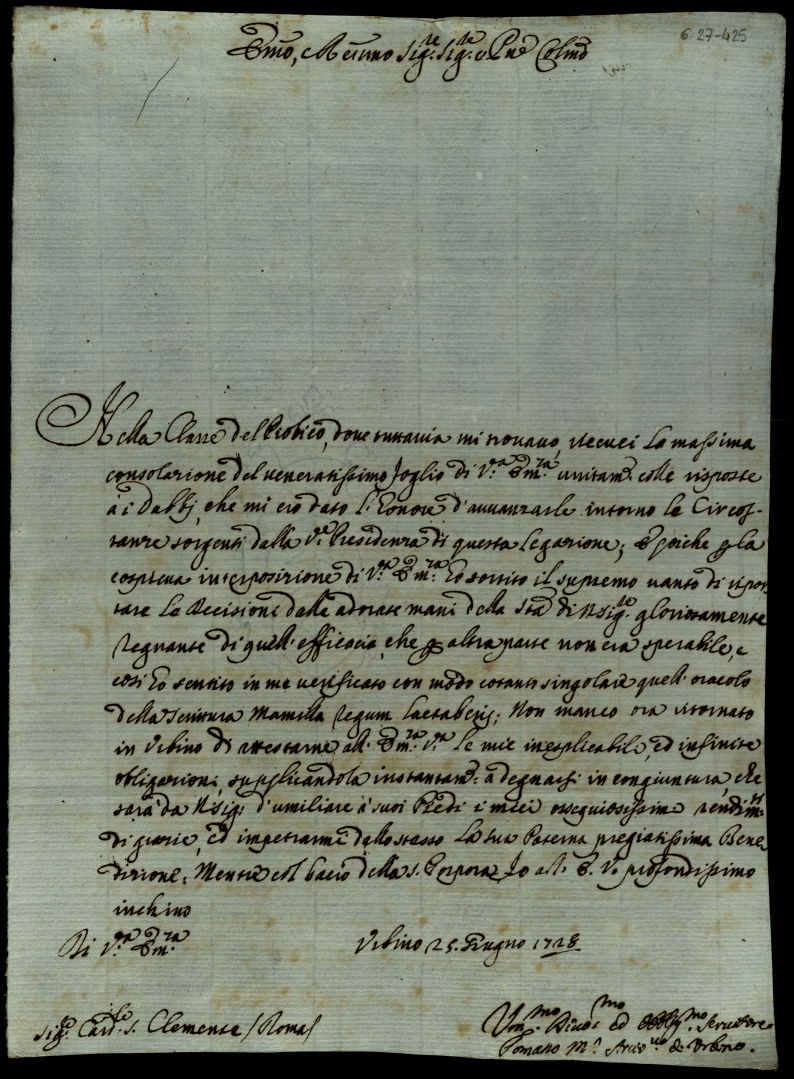 6-27-425
Em̃o, e Reũmo Sig.re Sig.re e Pñe Colm̃o
Nella Classe del Prolico, dove tuttavia mi trovavo, ricevei la massima
consolazione del veneratissimo foglio di V.ra Em.za unitam.e colle risposte
à i Dubbj, che mi ero dato l'honore d'avvanzarle intorno le Circos-
tanze sorgenti dalla V.e Presidenza di questa Legazione; E poiche p la
cospicua interposizione di V.ra Em.za hò sortito il supremo vanto di ripor-
tare le Decisioni dalle adorate mani della Stà di N Sig.re gloriosamente
Regnante di quell'efficacia, che p altra parte non era sperabile, e
così hò sentito in me verificato con modo cotanto singolare quell'oracolo
della scrittura Mamilla regum lactaberis; Non manco ora ritornato
in Urbino di attestarne all'Em.za V.ra le mie inesplicabili, ed infinite
obligazioni, supplicandola instantam.e à degnarsi in congiuntura, che
sarà da N Sig.e d'umiliare à suoi Piedi i miei ossequiosissimi rendim.ti
di grazie, ed impetrarmi dallo stesso la sua Paterna pregiatissima Bene
dizione; Mentre col bacio della S. Porpora fo all'E. V. profondissimo
inchino
Di V.ra Em.za
Urbino 25. Giugno 1728
Sig.r Card.le S. Clemente /Roma/
Um.mo Divot.mo ed Obblig.mo Servitore
Tomaso M.a Arciv.vo di Urbino.